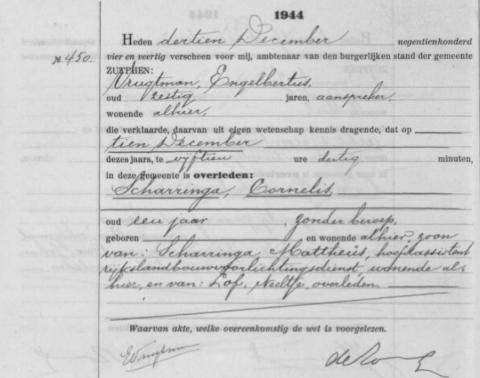 1944
Heden dertien December negentienhonderd
№ 450. vier en veertig verscheen voor mij, ambtenaar van den burgerlijken stand der gemeente
ZUTPHEN:
Vrugtman, Engelbertus,
oud zestig jaren, aanspreker,
wonende alhier,
die verklaarde, daarvan uit eigen wetenschap kennis dragende, dat op
tien December
dezes jaars, te vijftien ure dertig minuten,
in deze gemeente is overleden:
Scharringa, Cornelis,
oud een jaar, zonder beroep,
geboren en wonende alhier, zoon
van: Scharringa, Mattheüs, hoofdassistent
rijkslandbouwvoorlichtingsdienst, wonende al-
hier, en van: Lof, Neeltje, overleden
Waarvan akte, welke overeenkomstig de wet is voorgelezen.